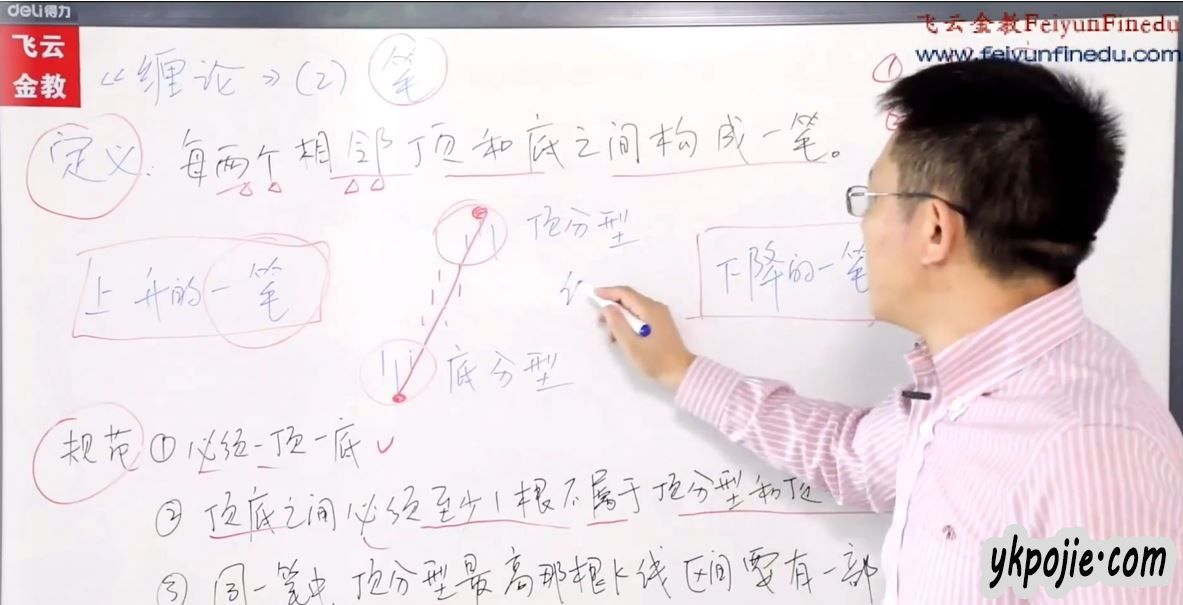 deli得力
飞云金教FeiyunFinedu
www.feiyunfinedu.com
飞云
金教
《缠论》(2) 笔
①
定义: 每两个相邻顶和底之间构成一笔。
顶分型
上升的一笔
下降的一笔
底分型
规范 ① 必须一顶一底
② 顶底之间必须至少1根不属于顶分型和顶
③ 同一笔中,顶分型最高那根K线区间要有一部
ykpojie·com